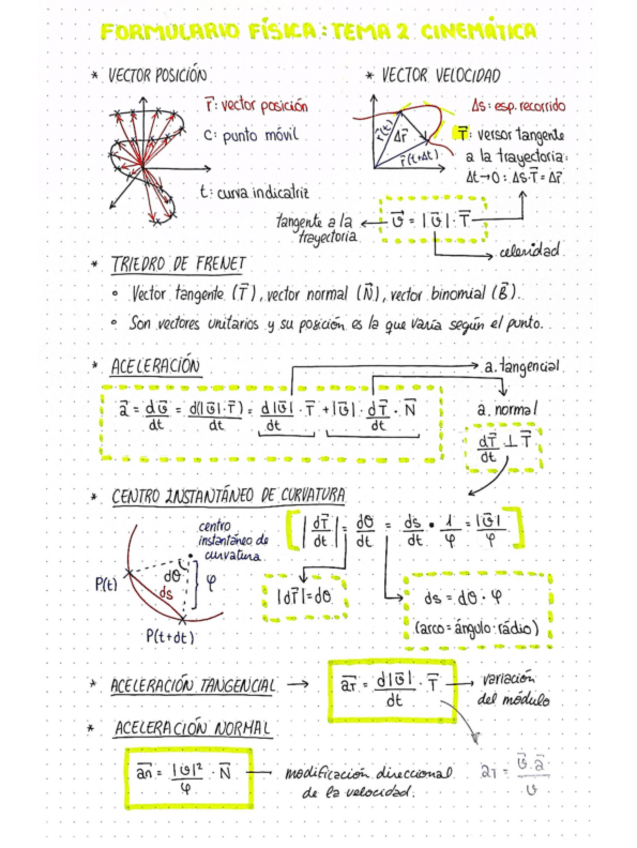 FORMULARIO FÍSICA: TEMA 2 CINEMÁTICA
* VECTOR POSICIÓN
r⃗: vector posición
C: punto móvil
t: curva indicatriz
* VECTOR VELOCIDAD
r⃗(t)
Δr⃗
r⃗(t+Δt)
Δs: esp. recorrido
T⃗: versor tangente
a la trayectoria:
Δt→0: Δs·T⃗ = Δr⃗
tangente a la ← v⃗ = |v⃗|·T⃗
trayectoria
→ celeridad
* TRIEDRO DE FRENET
° Vector tangente (T⃗), vector normal (N⃗), vector binomial (B⃗).
° Son vectores unitarios y su posición es la que varía según el punto.
* ACELERACIÓN
→ a. tangencial
a⃗ = dv⃗/dt = d(|v⃗|·T⃗)/dt = d|v⃗|/dt · T⃗ + |v⃗| · dT⃗/dt · N⃗
a. normal
dT⃗/dt ⊥ T⃗
* CENTRO INSTANTÁNEO DE CURVATURA
centro
instantáneo de
curvatura
P(t)
dθ
ds
φ
P(t+dt)
[|dT⃗/dt| = dθ/dt = ds/dt · 1/φ = |v⃗|/φ]
|dT⃗| = dθ
ds = dθ · φ
(arco = ángulo · rádio)
* ACELERACIÓN TANGENCIAL → a⃗T = d|v⃗|/dt · T⃗ → variación
del módulo
* ACELERACIÓN NORMAL
a⃗n = |v⃗|²/φ · N⃗ — modificación direccional
de la velocidad.
aT = v⃗·a⃗/v